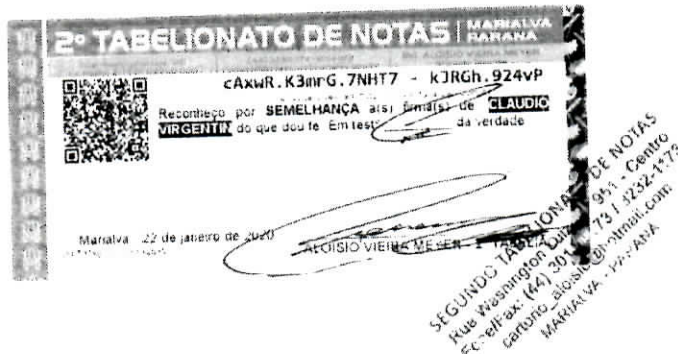 2º TABELIONATO DE NOTAS MARIALVA PARANÁ
cAxwR.K3mrG.7NHT7 - kJRGh.924vP
Reconheço por SEMELHANÇA a(s) firma(s) de CLAUDIO
VIRGENTIN do que dou fé. Em test da verdade
Marialva 22 de janeiro de 2020
ALOISIO VIEIRA MEYER
SEGUNDO DE NOTAS
Rua Washington 951 - Centro
Fone/Fax: (44) 3232-1173
cartorio_aloisio@hotmail.com
MARIALVA - PARANÁ